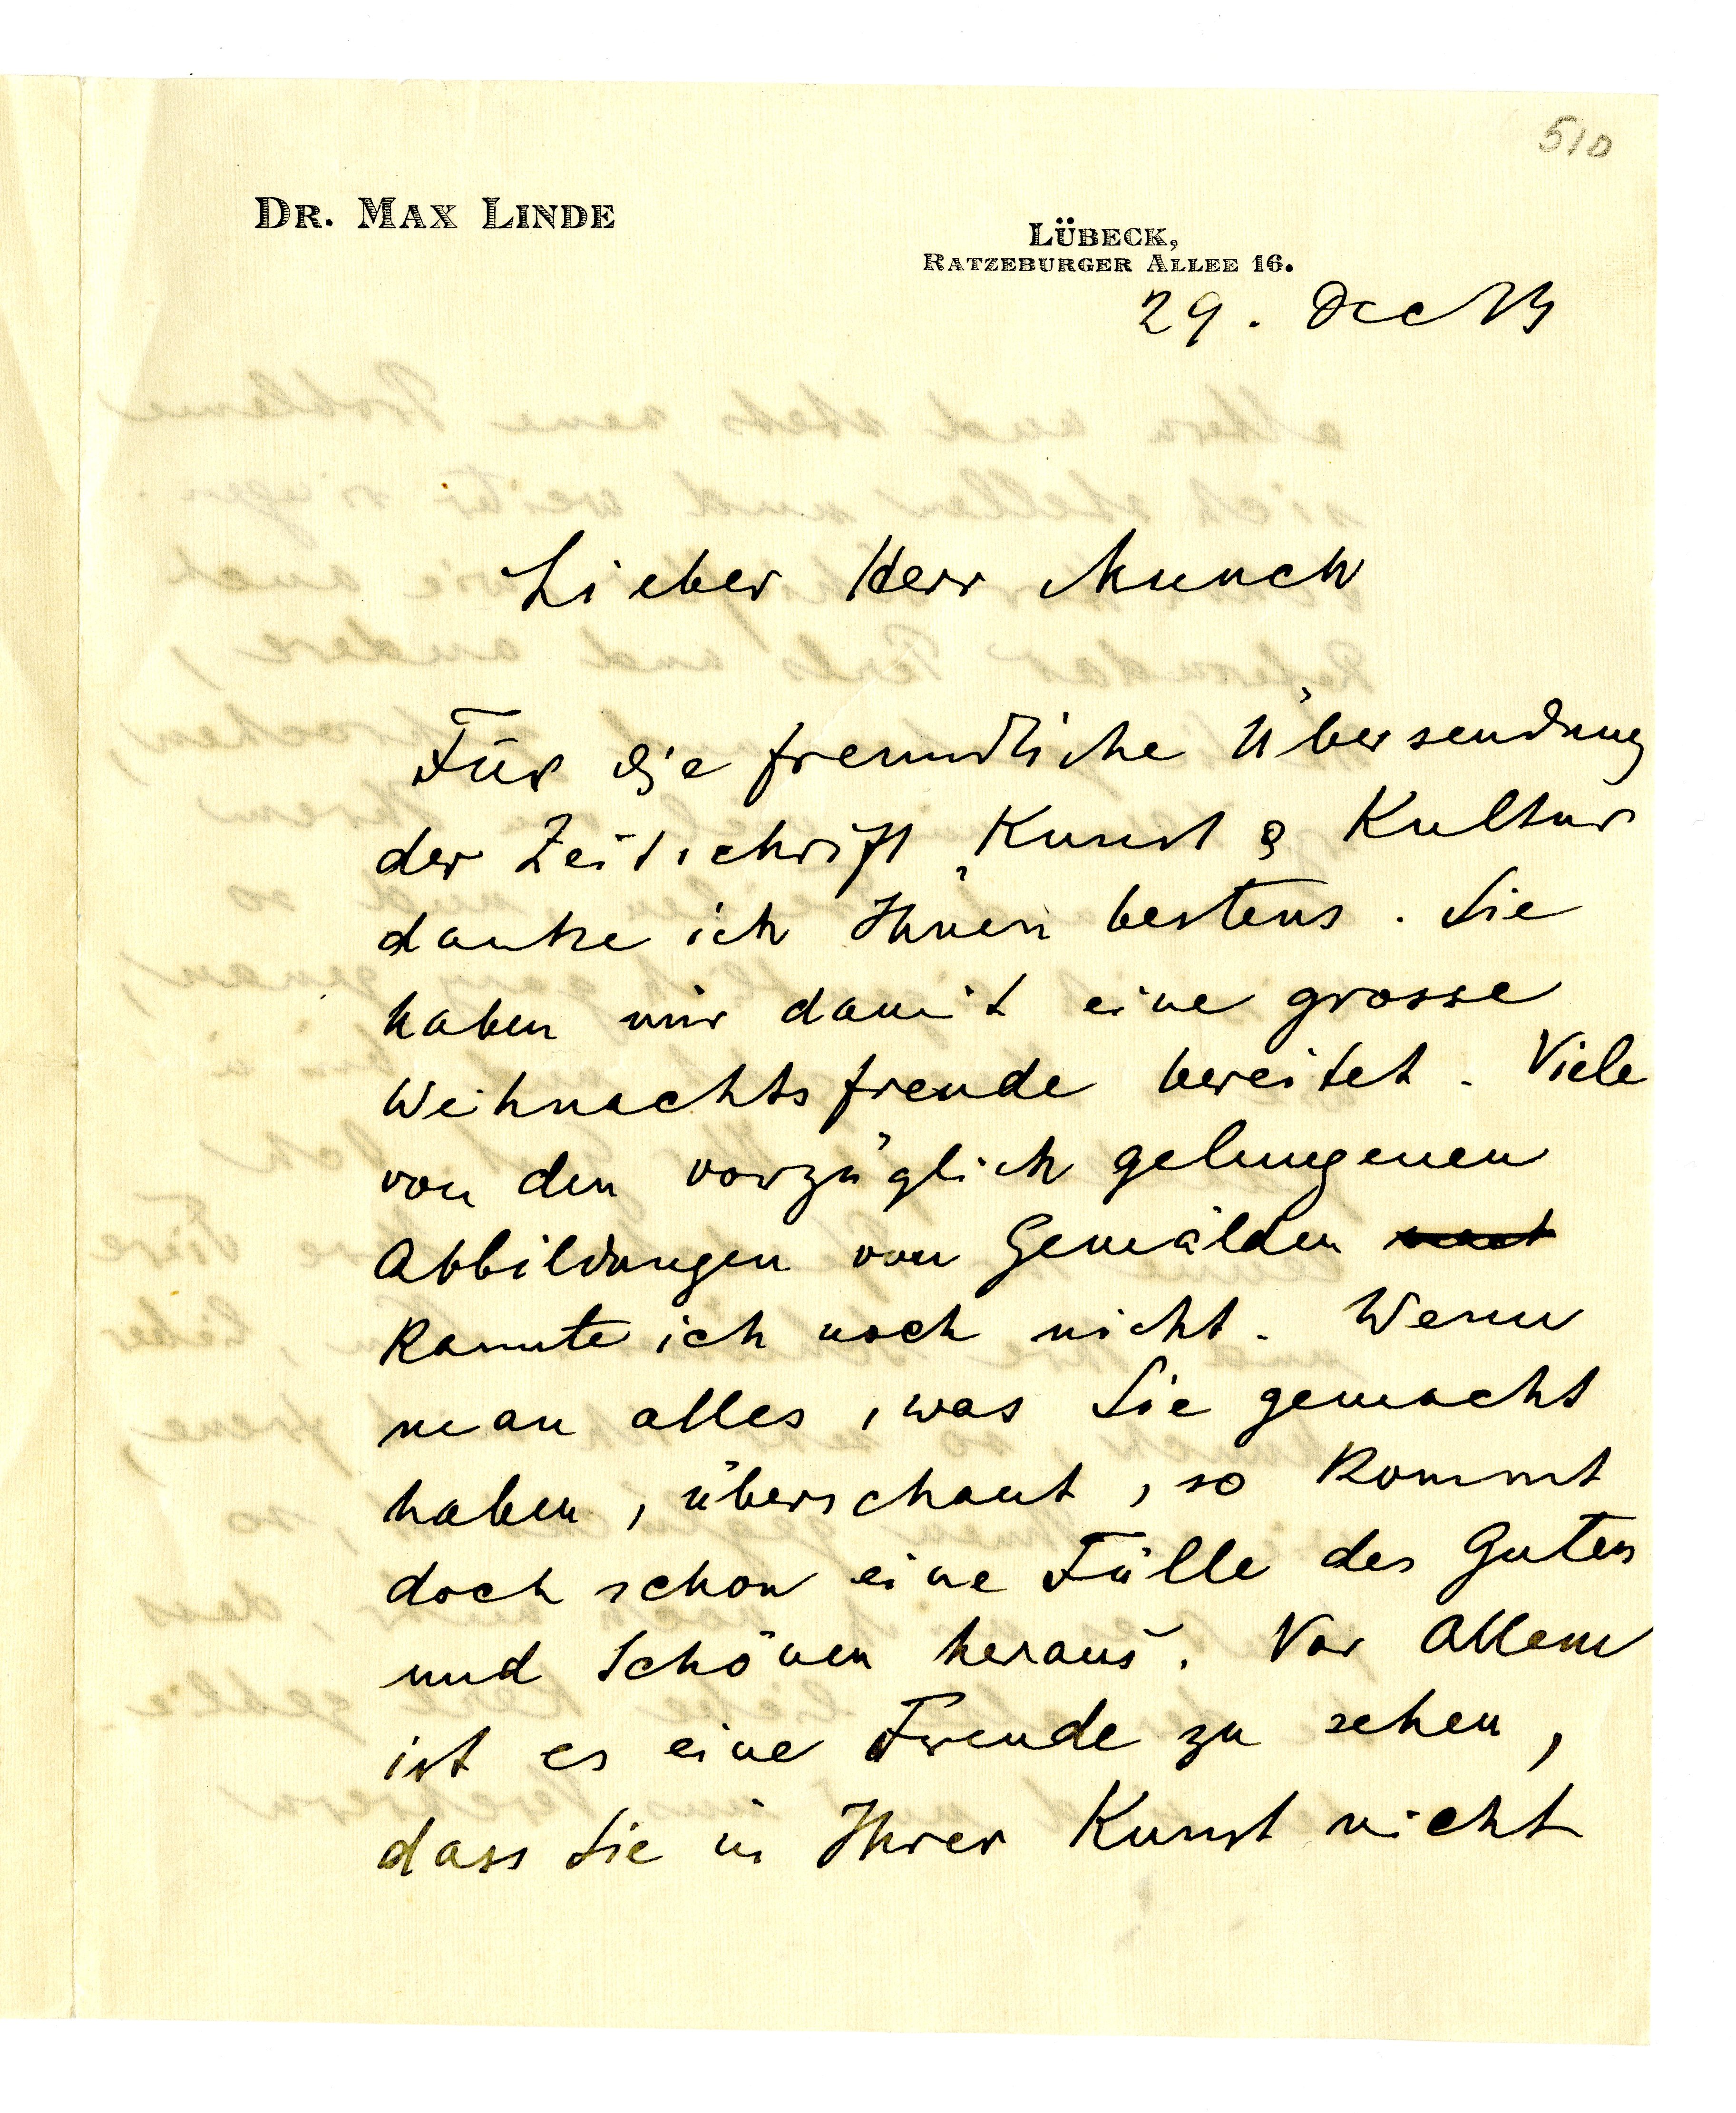 510
DR. MAX LINDE
LÜBECK,
RATZEBURGER ALLEE 16.
29. Dec 13
Lieber Herr Munch
Für die freundliche Übersendung
der Zeitschrift „Kunst & Kultur"
danke ich Ihnen bestens. Sie
haben mir damit eine grosse
Weihnachtsfreude bereitet. Viele
von den vorzüglich gelungenen
Abbildungen von Gemälden
kannte ich noch nicht. Wenn
man alles, was Sie gemacht
haben, überschaut, so kommt
doch schon eine Fülle des Guten
und Schönen heraus. Vor Allem
ist es eine Freude zu sehen,
dass Sie in Ihrer Kunst nicht